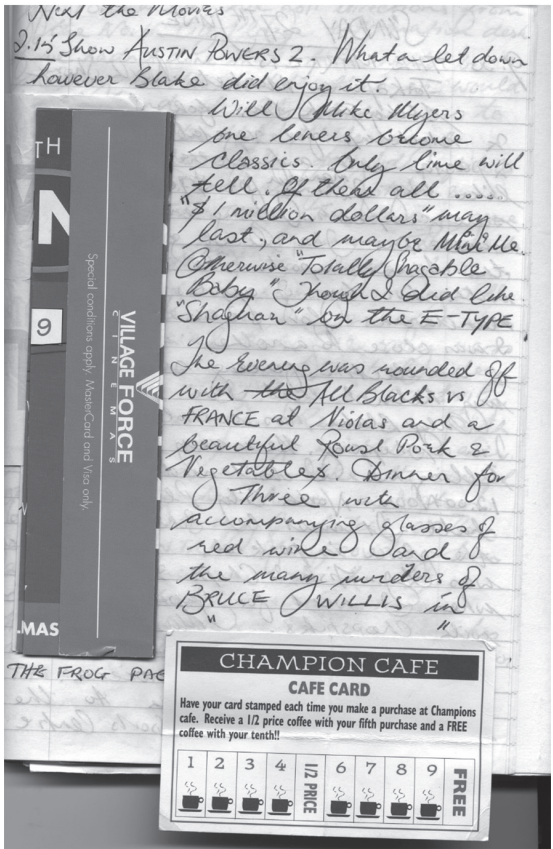 Next the Movies
2.15 Show AUSTIN POWERS 2. What a let down
however Blake did enjoy it.
Will Mike Myers
one liners become
classics. Only time will
tell. Of them all .....
"$1 million dollars" may
last, and maybe Mini Me.
Otherwise "Totally Shagable
Baby" Though I did like
"Shaghan" on the E-TYPE
The Evening was rounded off
with the All Blacks vs
FRANCE at Violas and a
beautiful Roast Pork &
Vegetables. Dinner for
Three with
accompanying glasses of
red wine and
the many murders of
BRUCE WILLIS in
" "
THE FROG PAC
TH
N
9
.MAS
VILLAGE FORCE
CINEMAS
Special conditions apply. MasterCard and Visa only.
CHAMPION CAFE
CAFE CARD
Have your card stamped each time you make a purchase at Champions
cafe. Receive a 1/2 price coffee with your fifth purchase and a FREE
coffee with your tenth!!
1 2 3 4 1/2 PRICE 6 7 8 9 FREE